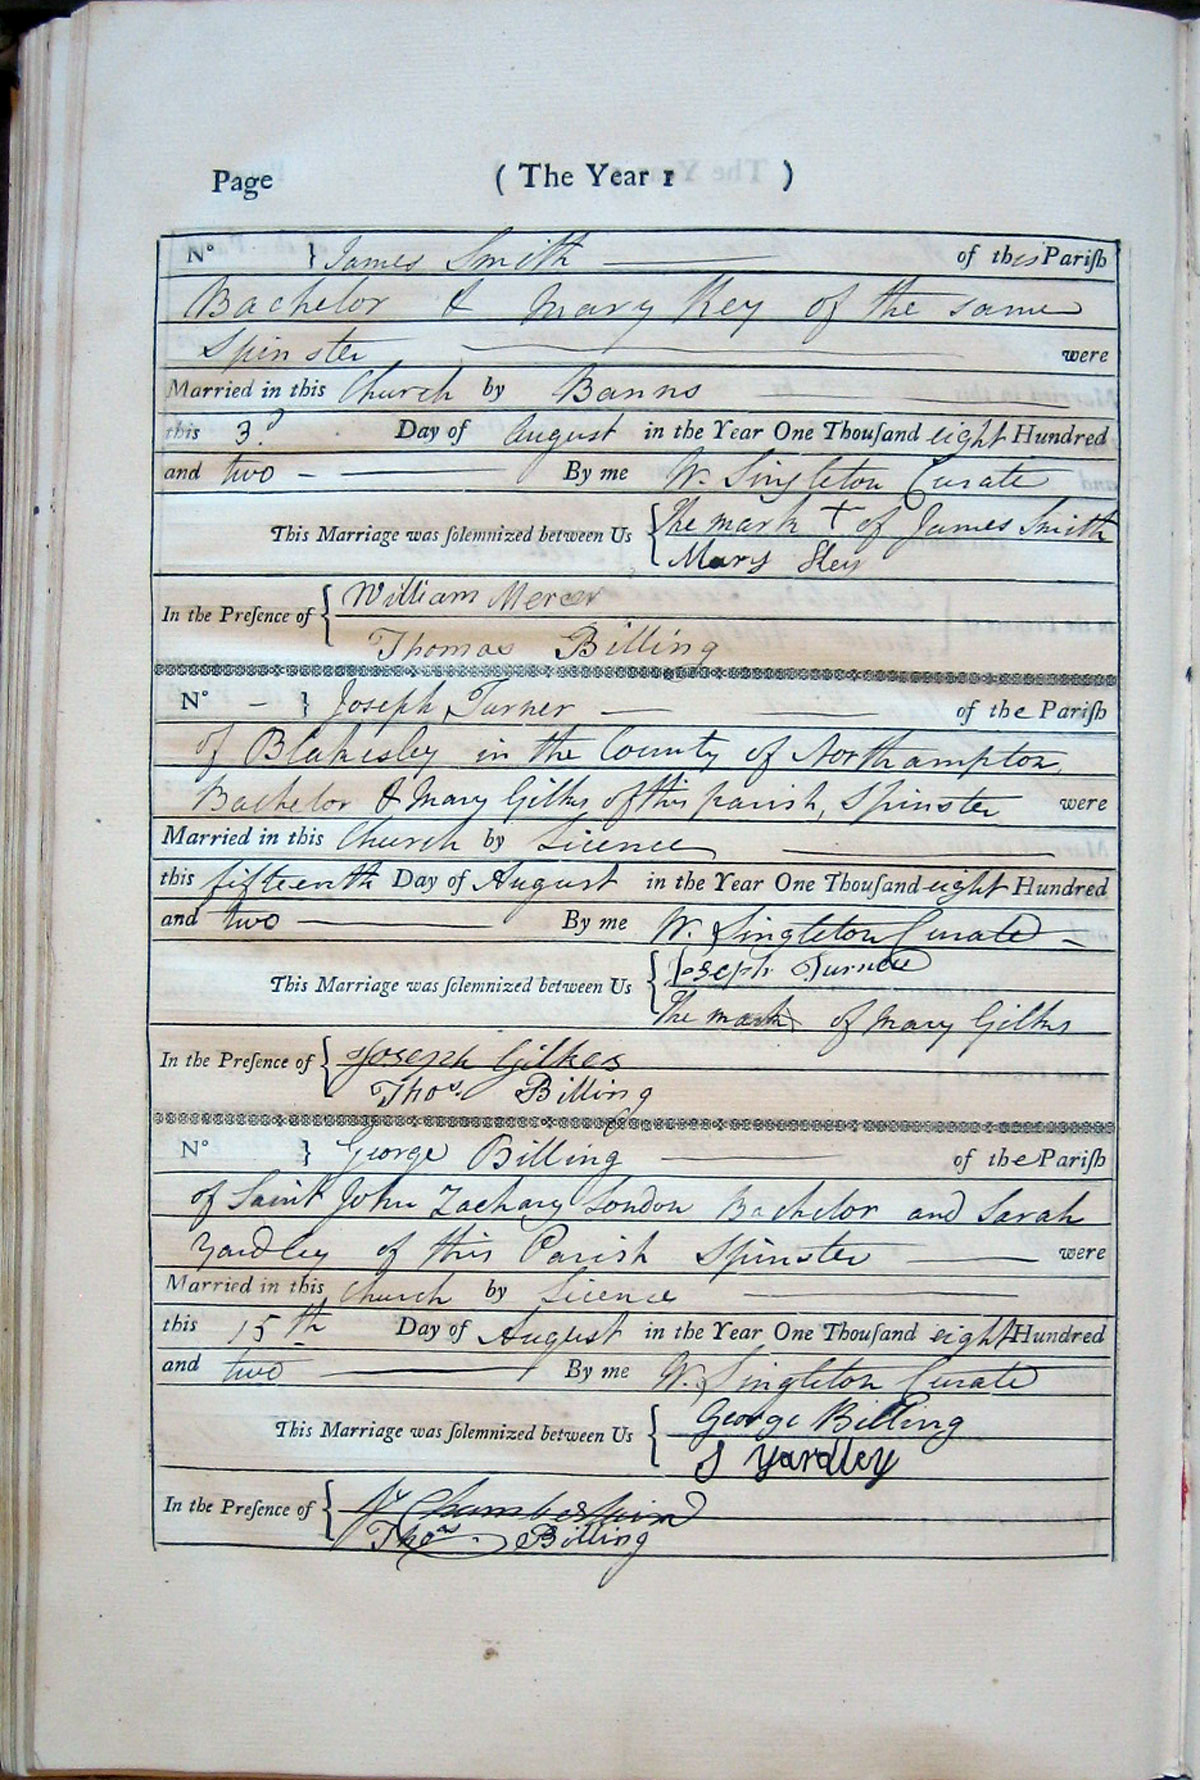 Page ( The Year 1 )
N° } James Smith of this Pariſh
Bachelor & Mary Key of the same
Spinster were
Married in this Church by Banns
this 3.d Day of August in the Year One Thouſand eight Hundred
and two By me W. Singleton Curate
This Marriage was ſolemnized between Us { The mark + of James Smith
Mary Key
In the Preſence of { William Mercer
Thomas Billing
N° - } Joseph Turner of the Pariſh
of Blakesley in the County of Northampton,
Bachelor & Mary Gilkes of this parish, Spinster were
Married in this Church by Licence
this fifteenth Day of August in the Year One Thouſand eight Hundred
and two By me W. Singleton Curate
This Marriage was ſolemnized between Us { Joseph Turner
The mark of Mary Gilkes
In the Preſence of { Joseph Gilkes
Thos. Billing
N° } George Billing of the Pariſh
of Saint John Zachary London Bachelor and Sarah
Yardley of this Parish Spinster were
Married in this Church by Licence
this 15th Day of August in the Year One Thouſand eight Hundred
and two By me W. Singleton Curate
This Marriage was ſolemnized between Us { George Billing
S Yardley
In the Preſence of { Chamberlain
Thos. Billing